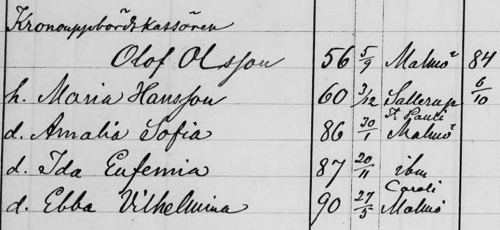 Kronouppbördskassören
Olof Olsson 56 5/9 Malmö 84
h. Maria Hansson 60 3/12 Sallerup 6/10
d. Amalia Sofia 86 30/1 St Pauli Malmö
d. Ida Eufemia 87 20/11 ibm
d. Ebba Vilhelmina 90 27/5 Caroli Malmö